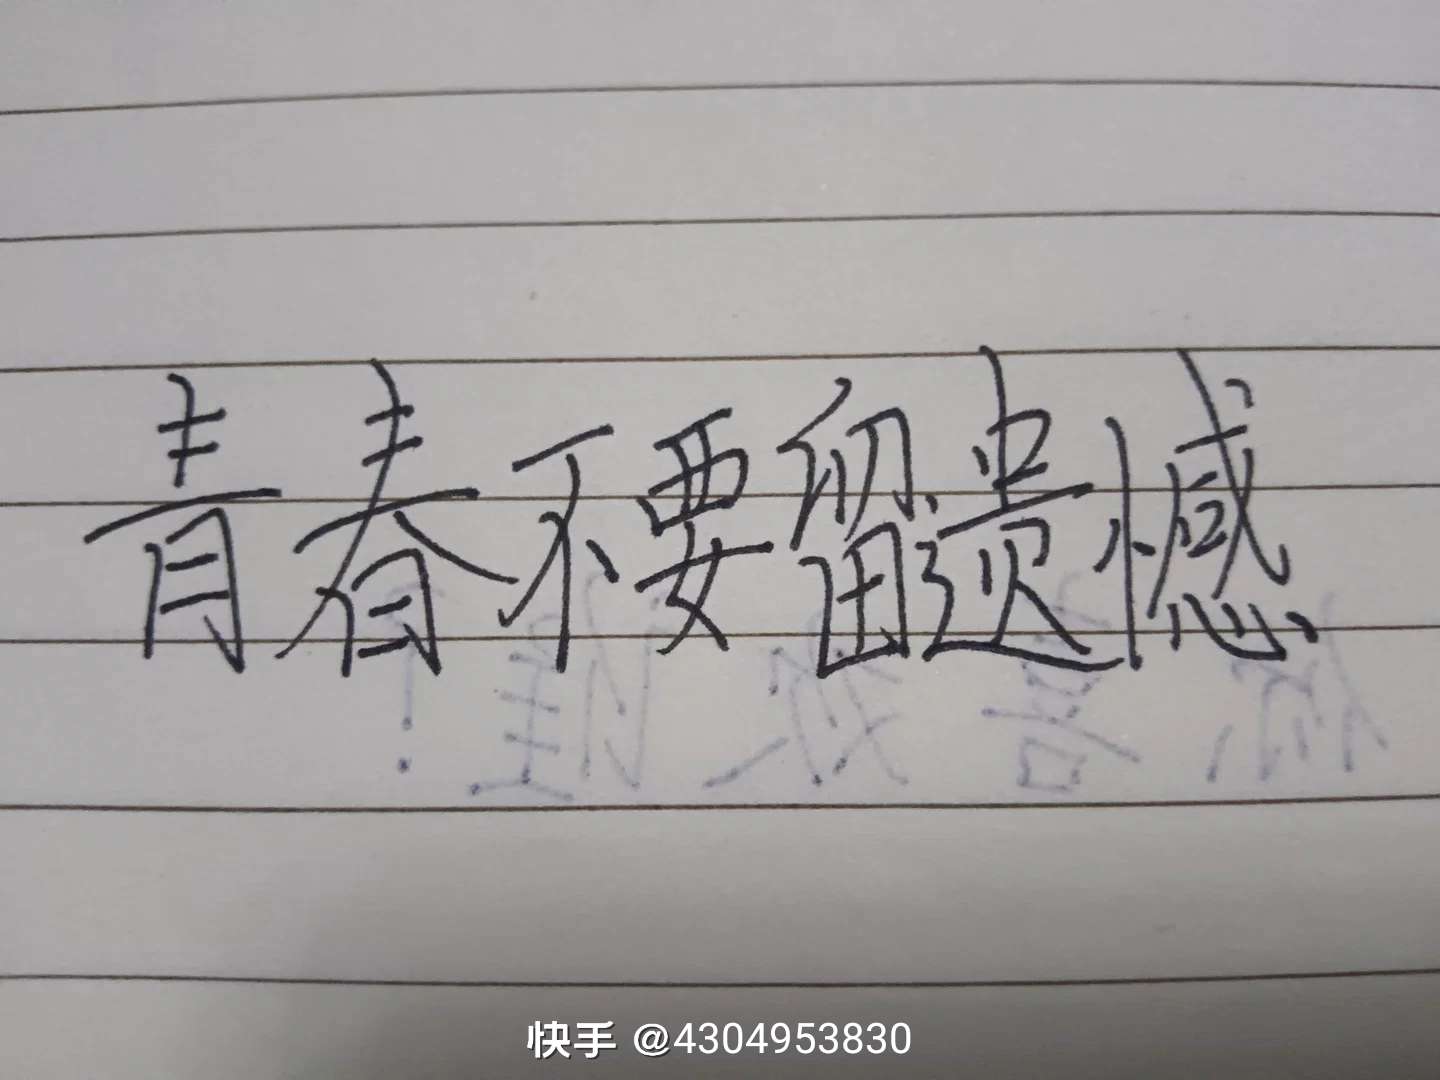 青春不要留遗憾
快手 @4304953830